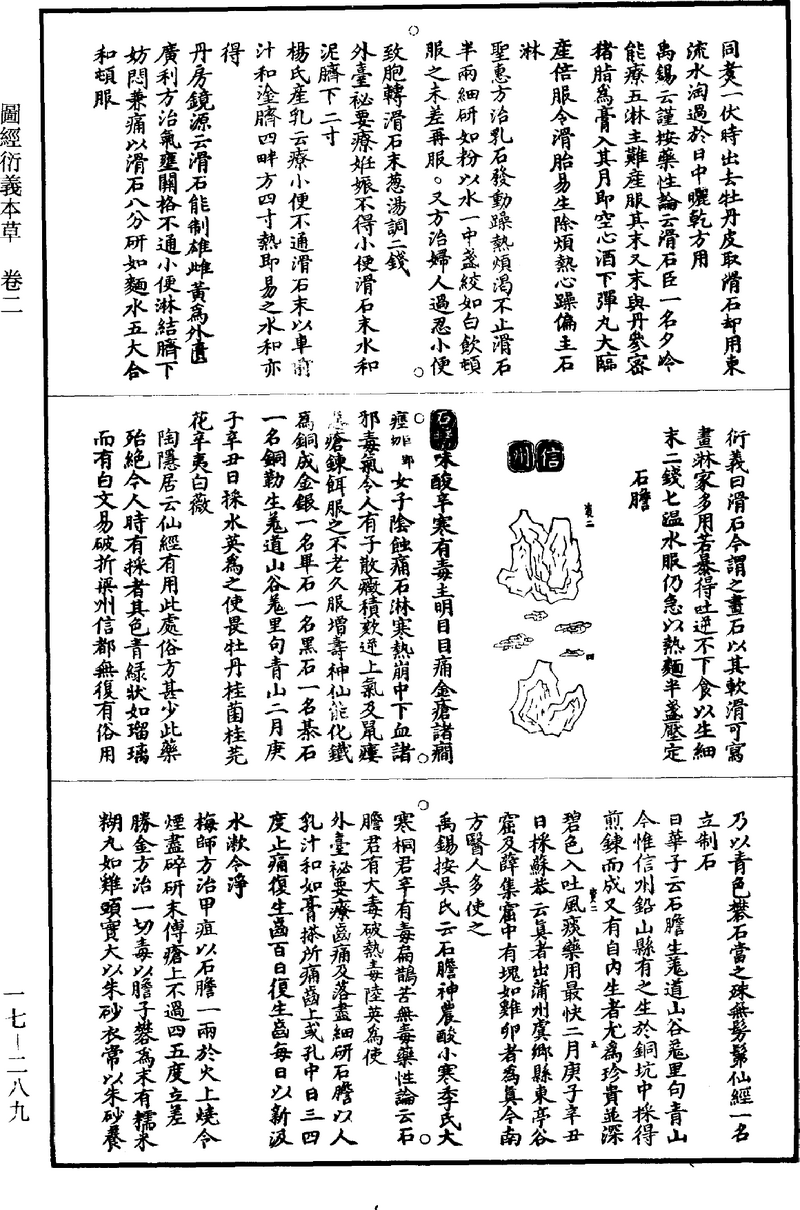 同煑一伏時出去牡丹皮取滑石却用東
流水淘過於日中曬乾方用
禹錫云謹按藥性論云滑石臣一名夕冷
能療五淋主難産服其末又末與丹參蜜
猪脂為膏入其月即空心酒下彈丸大臨
産倍服令滑胎易生除煩熱心躁偏主石
淋
聖惠方治乳石發動躁熱煩渴不止滑石
半兩細研如粉以水一中盞絞如白飲頓
服之未差再服。又方治婦人過忍小便
致胞轉滑石末葱湯調二錢
外臺祕要療姙娠不得小便滑石末水和
泥臍下二寸
楊氏産乳云療小便不通滑石末以車前
汁和塗臍四畔方四寸熱即易之水和亦
得
丹房鏡源云滑石能制雄雌黃為外匱
廣利方治氣壅關格不通小便淋結臍下
妨悶兼痛以滑石八分研如麵水五大合
和頓服
衍義曰滑石今謂之畫石以其軟滑可寫
畫淋家多用若暴得吐逆不下食以生細
末二錢七溫水服仍急以熱麵半盞壓定
石膽
信州
石膽味酸辛寒有毒主明目目痛金瘡諸癇
痙女子陰蝕痛石淋寒熱崩中下血諸
邪毒氣令人有子散癥積欬逆上氣及鼠瘻
惡瘡鍊餌服之不老久服增壽神仙能化鐵
為銅成金銀一名畢石一名黑石一名棊石
一名銅勒生羌道山谷羌里句青山二月庚
子辛丑日採水英為之使畏牡丹桂菌桂芫
花辛夷白薇
陶隱居云仙經有用此處俗方甚少此藥
殆絶今人時有採者其色青綠狀如瑠璃
而有白文易破折梁州信都無復有俗用
乃以青色礬石當之殊無髣髴仙經一名
立制石
日華子云石膽生羌道山谷羌里句青山
今惟信州鉛山縣有之生於銅坑中採得
煎鍊而成又有自内生者尤為珍貴並深
碧色入吐風痰藥用最快二月庚子辛丑
日採蘇恭云真者出蒲州虞鄉縣東亭谷
窟及薛集窟中有塊如雞卵者為真今南
方醫人多使之
禹錫按吳氏云石膽神農酸小寒李氏大
寒桐君辛有毒扁鵲苦無毒藥性論云石
膽君有大毒破熱毒陸英為使
外臺祕要療齒痛及落盡細研石膽以人
乳汁和如膏搽所痛齒上或孔中日三四
度止痛復生齒百日復生齒每日以新汲
水漱令淨
梅師方治甲疽以石膽一兩於火上燒令
煙盡碎研末傅瘡上不過四五度立差
勝金方治一切毒以膽子礬為末有糯米
糊丸如雞頭實大以朱砂衣常以朱砂養
圖經衍義本草　卷二
一七－二八九